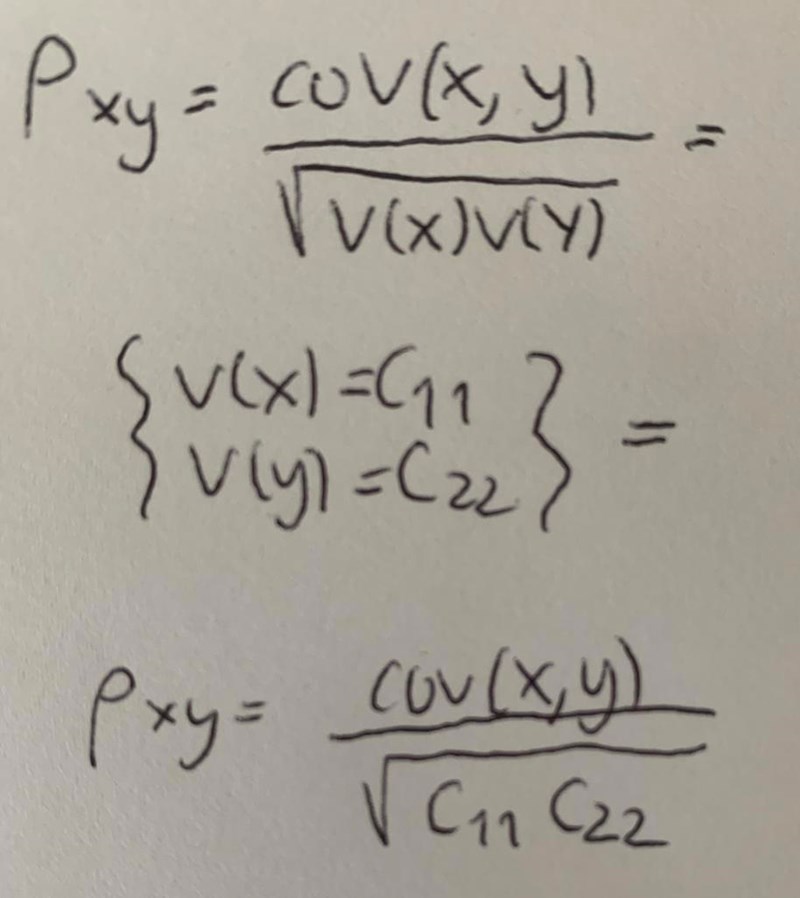 ρxy = cov(x, y) / √V(x)V(Y) =
{ V(x) = C11
V(y) = C22 } =
ρxy = cov(x,y) / √C11 C22